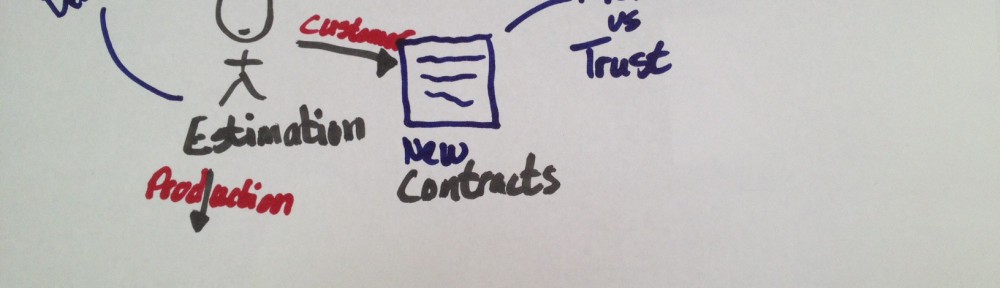 Customer
us
Trust
Estimation
New
Contracts
Production